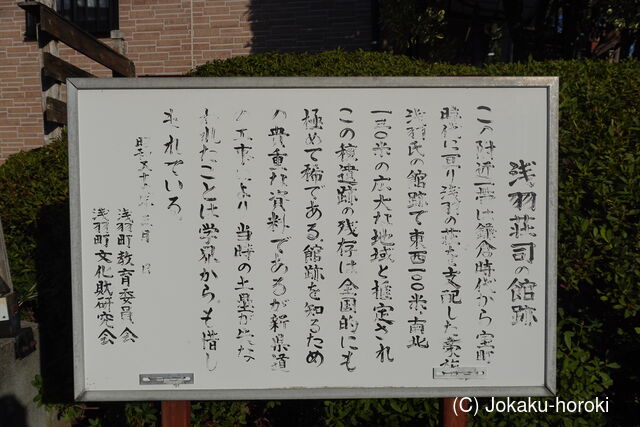 浅羽荘司の館跡
この附近一帯は鎌倉時代から室町
時代に亘り浅羽の荘を支配した豪族
浅羽氏の館跡で東西一〇〇米南北
一五〇米の広大な地域と推定され
この種遺跡の残存は全国的にも
極めて稀である館跡を知るため
の貴重な資料であるが新県道
の工事により当時の土塁が
われたことは学界からも惜し
まれている
昭和五十 年 三月 日
浅羽町教育委員会
浅羽町文化財研究会
(C) Jokaku-horoki